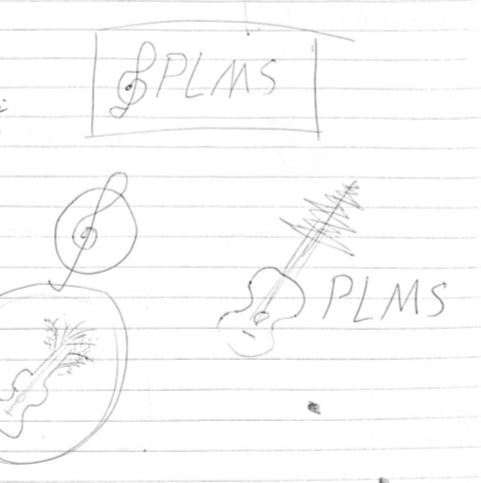 PLMS
PLMS